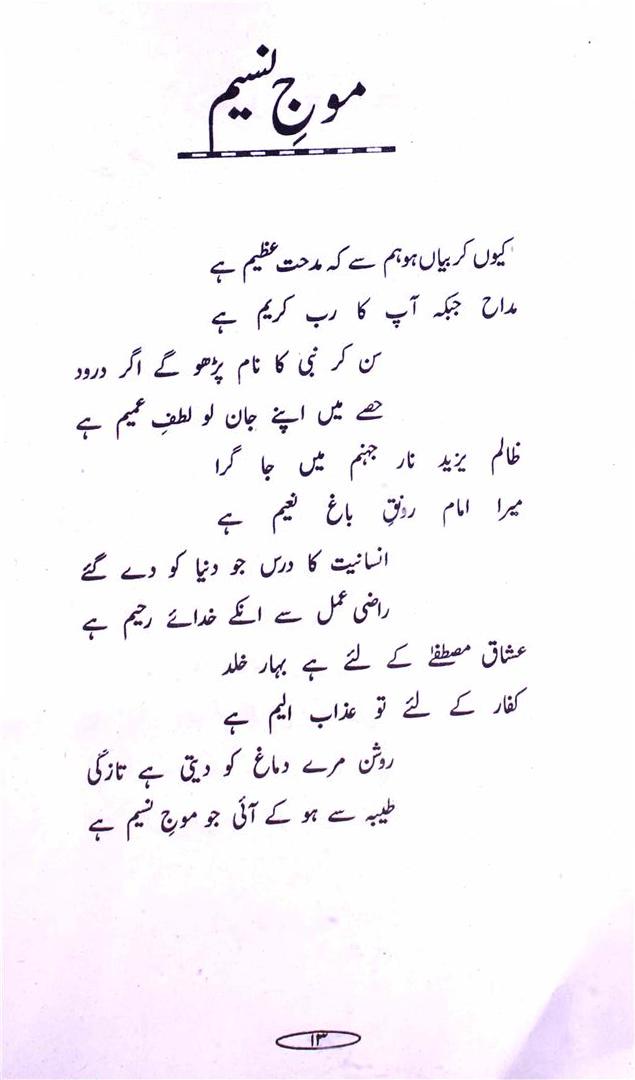 موجِ نسیم
کیوں کر بیاں ہو ہم سے کہ مدحت عظیم ہے
مداح جبکہ آپ کا رب کریم ہے
سن کر نبیؐ کا نام پڑھو گے اگر درود
حصے میں اپنے جان لو لطفِ عمیم ہے
ظالم یزید نار جہنم میں جا گرا
میرا امام رونقِ باغ نعیم ہے
انسانیت کا درس جو دنیا کو دے گئے
راضی عمل سے انکے خدائے رحیم ہے
عشاق مصطفےٰ کے لئے ہے بہار خلد
کفار کے لئے تو عذاب الیم ہے
روشن مرے دماغ کو دیتی ہے تازگی
طیبہ سے ہو کے آئی جو موجِ نسیم ہے
۱۳